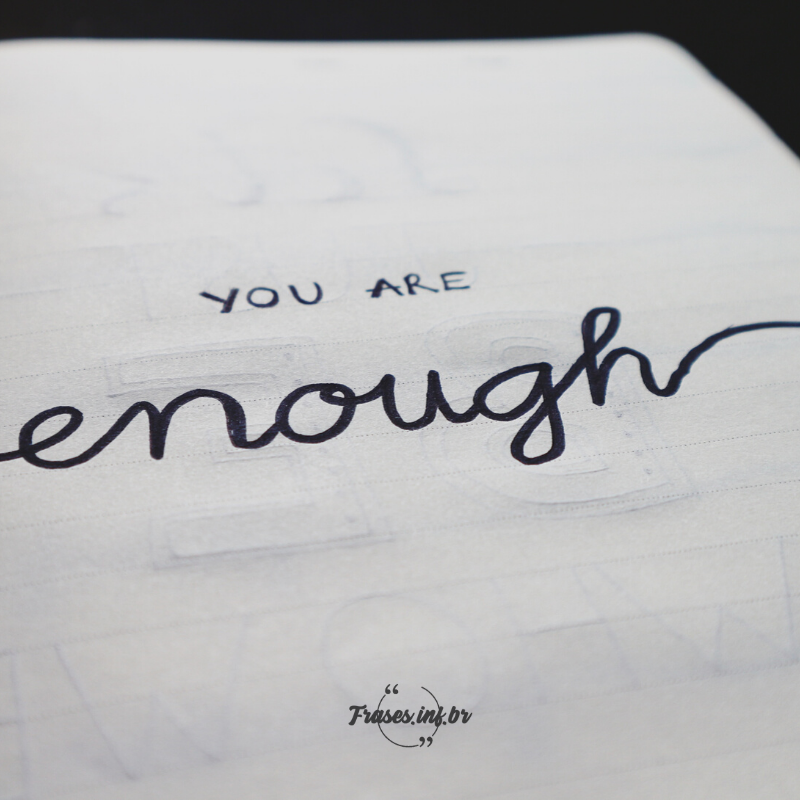 YOU ARE
enough
Frases.inf.br